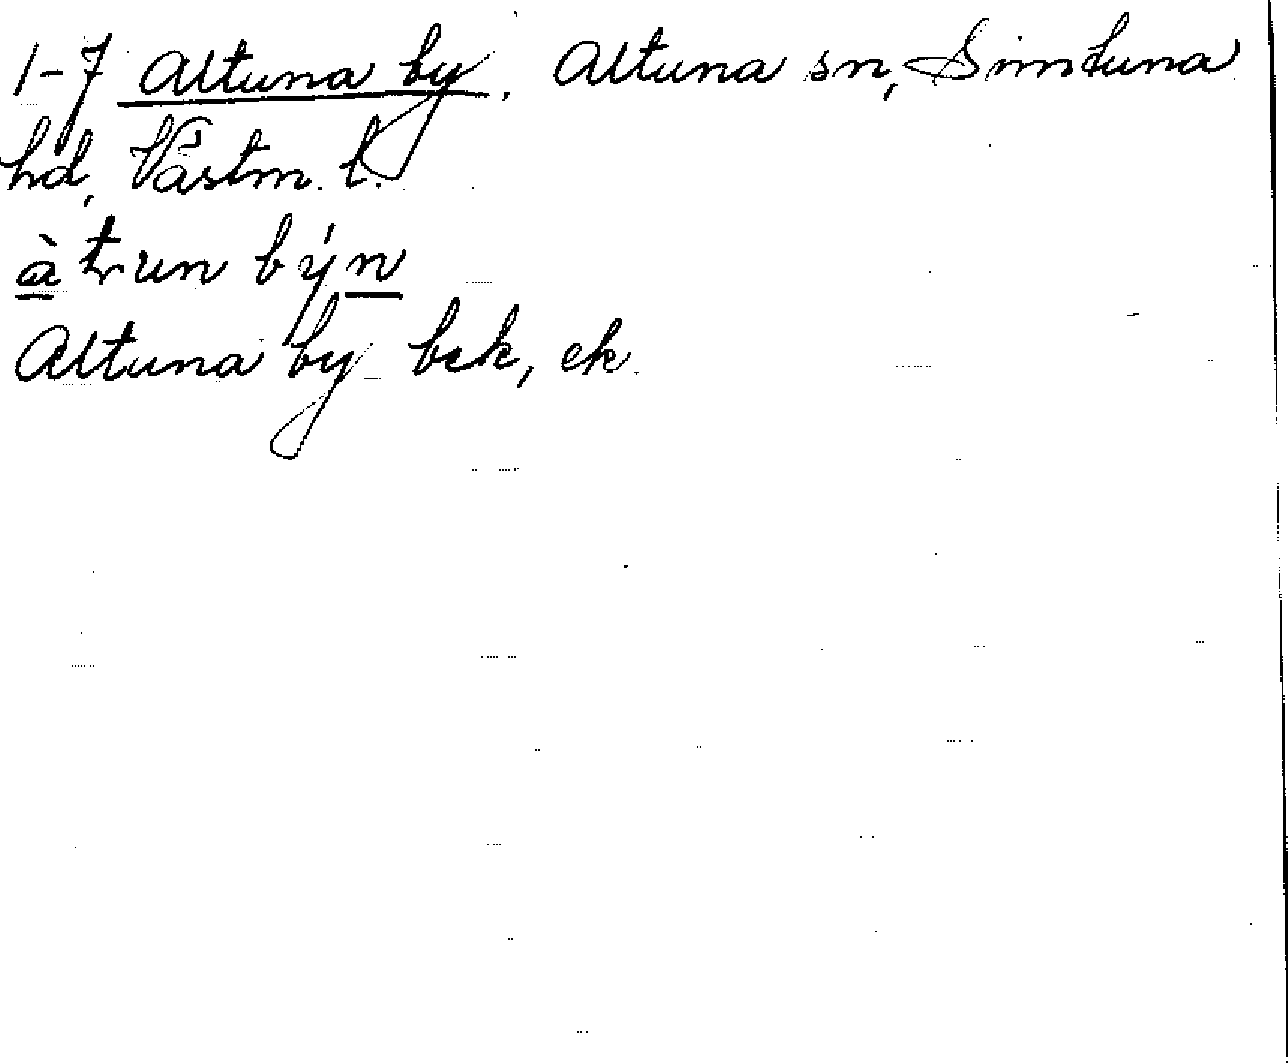 1-7 Altuna by. Altuna sn, Simtuna
hd, Västm. l.
àtrun býn
Altuna by bek, ek.